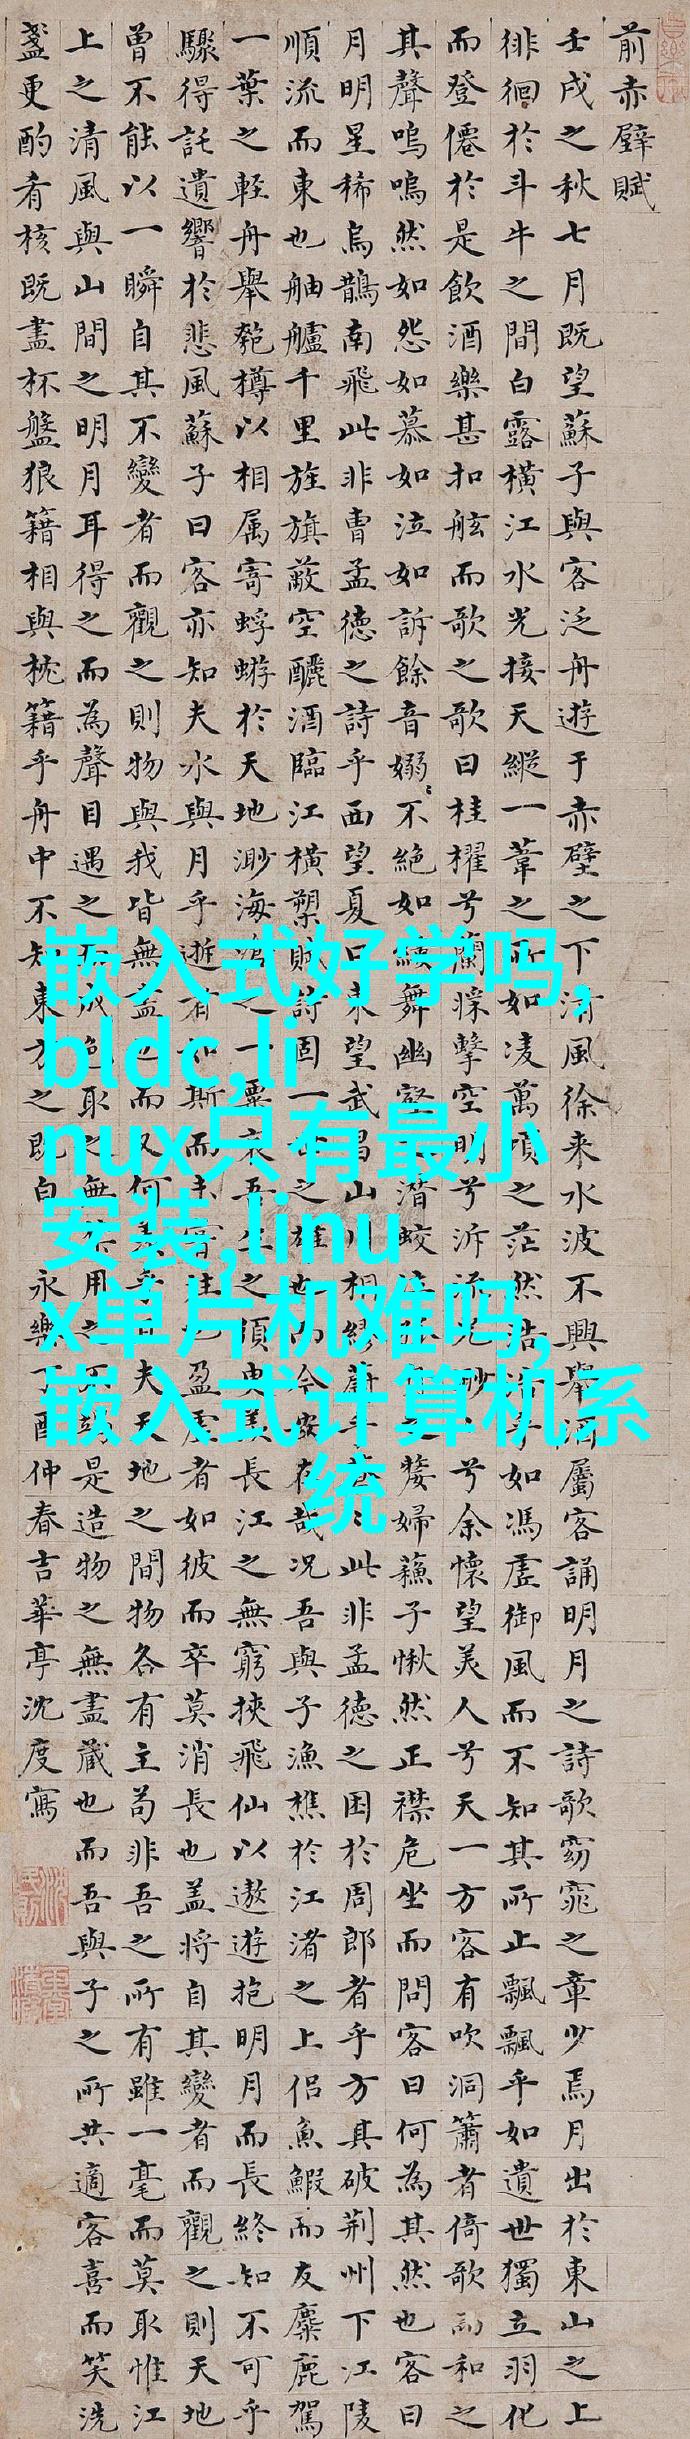 前赤壁賦
壬戌之秋七月既望蘇子與客泛舟遊于赤壁之下清風徐来水波不興舉酒屬客誦明月之詩歌窈窕之章少焉月出於東山之上
徘徊於斗牛之間白露橫江水光接天縱一葦之所如凌萬頃之茫然浩浩乎如馮虛御風而不知其所止飄飄乎如遺世獨立羽化
而登僊於是飲酒樂甚扣舷而歌之歌曰桂櫂兮蘭槳擊空明兮泝流光渺渺兮余懷望美人兮天一方客有吹洞簫者倚歌而和之
其聲嗚嗚然如怨如慕如泣如訴餘音嫋〻不絕如縷舞幽壑之潛蛟泣孤舟之嫠婦蘓子愀然正襟危坐而問客曰何為其然也客曰
月明星稀烏鵲南飛此非曹孟德之詩乎西望夏口東望武昌山川相繆蔚乎蒼〻此非孟德之困於周郎者乎方其破荊州下江陵
順流而東也舳艫千里旌旗蔽空釃酒臨江橫槊賦詩固一世之雄也而今安在哉況吾與子漁樵於江渚之上侶魚鰕而友麋鹿駕
一葉之軽舟舉匏樽以相属寄蜉蝣於天地渺海滄之一粟哀吾生之須臾羨長江之無窮挾飛仙以遨遊抱明月而長終知不可乎
驟得託遺響於悲風蘇子曰客亦知夫水與月乎逝者如斯而未嘗往也盈虛者如彼而卒莫消長也盖將自其變者而觀之則天地
曾不能以一瞬自其不變者而觀之則物與我皆無盡也而又何羨乎且夫天地之間物各有主苟非吾之所有雖一毫而莫取惟江
上之清風與山間之明月耳得之而為聲目遇之而成色取之無禁用之不竭是造物之無盡藏也而吾與子之所共適客喜而笑洗
盞更酌肴核既盡杯盤狼籍相與枕籍乎舟中不知東方之既白 永樂丁酉仲春吉華亭沈度寫
嵌入式好学吗,
bldc,li
nux只有最小
安装,linu
x单片机难吗,
嵌入式计算机系
统